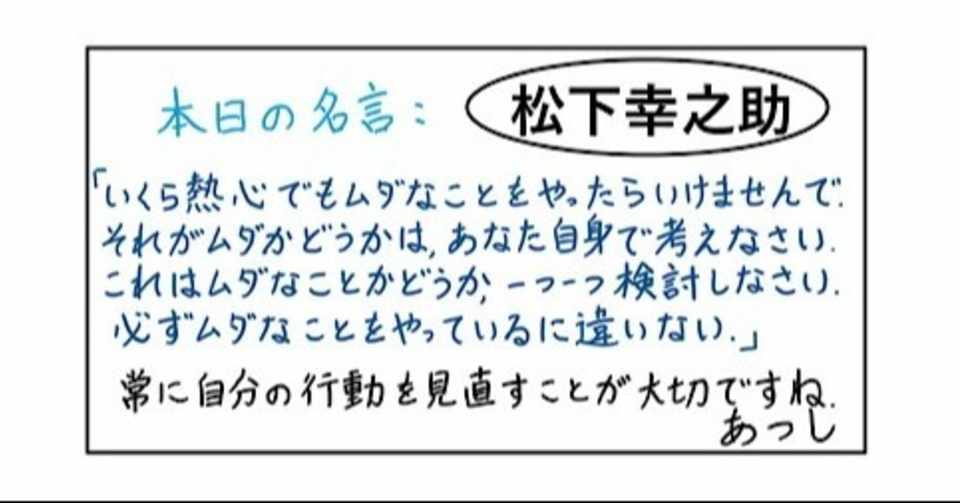 本日の名言: 松下幸之助
「いくら熱心でもムダなことをやったらいけませんで.
それがムダかどうかは,あなた自身で考えなさい.
これはムダなことかどうか,一つ一つ検討しなさい.
必ずムダなことをやっているに違いない.」
常に自分の行動を見直すことが大切ですね.
あつし